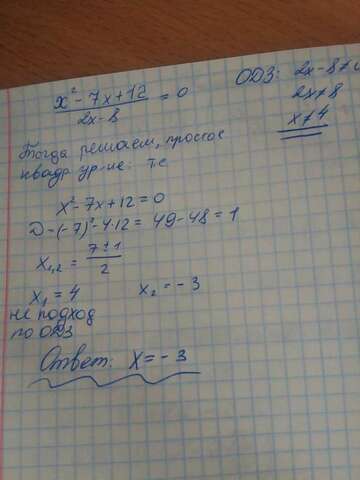 x² - 7x + 12 / 2x - 8 = 0
ОДЗ: 2x - 8 ≠ 0
2x ≠ 8
x ≠ 4
Тогда решаем, простое
квадр ур-ие: т.е
x² - 7x + 12 = 0
D = (-7)² - 4·12 = 49 - 48 = 1
x₁,₂ = 7 ± 1 / 2
x₁ = 4 x₂ = - 3
не подход
по ОДЗ
Ответ: x = - 3